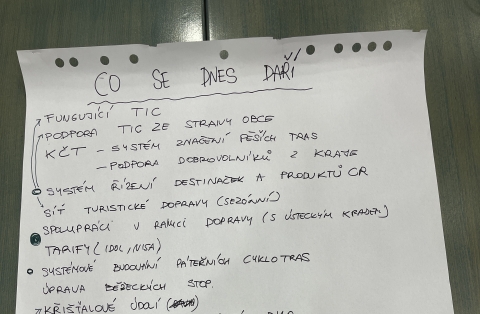 CO SE DNES DAŘÍ
FUNGUJÍCÍ TIC
PODPORA TIC ZE STRANY OBCE
KČT - SYSTÉM ZNAČENÍ PĚŠÍCH TRAS
- PODPORA DOBROVOLNÍKŮ Z KRAJE
SYSTÉM ŘÍZENÍ DESTINAČEK A PRODUKTŮ ČR
SÍŤ TURISTICKÉ DOPRAVY (SEZÓNNÍ)
SPOLUPRÁCI V RÁMCI DOPRAVY (S ÚSTECKÝM KRAJEM)
TARIFY (IDOL, NISA)
SYSTÉMOVÉ BUDOVÁNÍ PÁTEŘNÍCH CYKLOTRAS
ÚPRAVA BĚŽECKÝCH STOP.
KŘIŠŤÁLOVÉ ÚDOLÍ